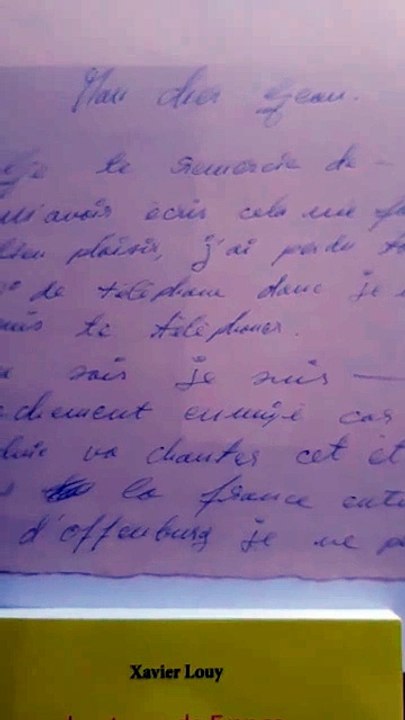 Mon cher Jean.
Je te remercie de
m'avoir écris cela me
bien plaisir, j'ai perdu
de téléphone donc je
te téléphoner.
sais je suis
ennuyé car
va chanter cet
la france
d'offenburg je ne
Xavier Louy